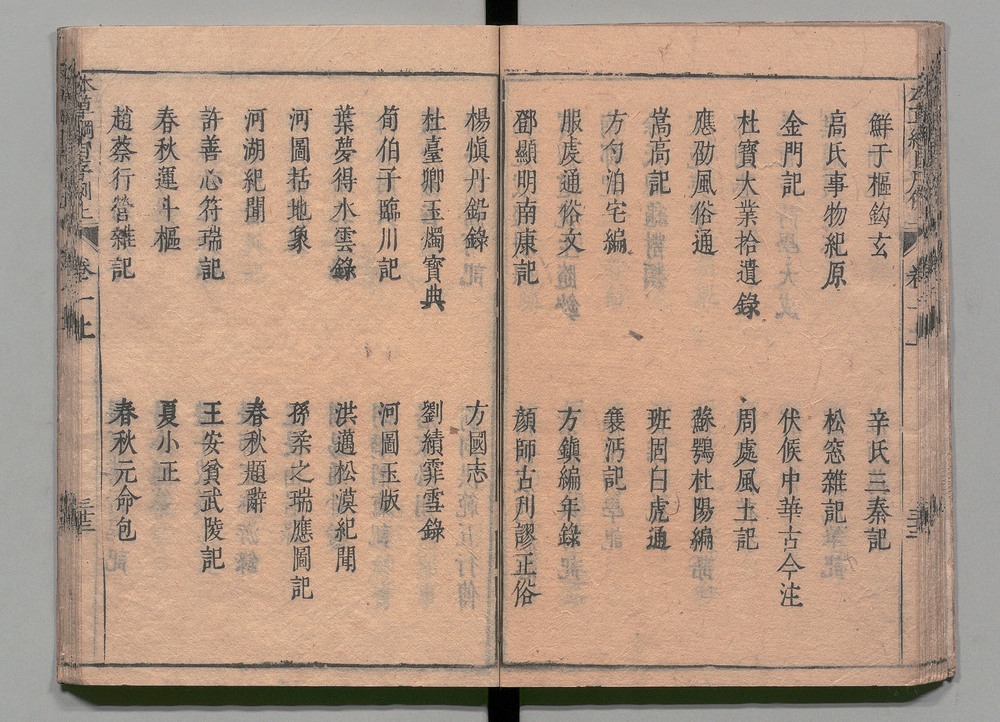 鮮于樞鈎玄
辛氏三秦記
高氏事物紀原
松窓雜記
金門記
伏候中華古今注
杜寶大業拾遺錄
周處風土記
應劭風俗通
蘇鶚杜陽編
嵩高記
班固白虎通
方勺泊宅編
襄沔記
服虔通俗文
方鎮編年錄
鄧顯明南康記
顏師古刋謬正俗
楊愼丹鉛錄
方國志
杜臺卿玉燭寶典
劉績霏雪錄
荀伯子臨川記
河圖玉版
葉夢得水雲錄
洪邁松漠紀聞
河圖括地象
孫柔之瑞應圖記
河湖紀聞
春秋題辭
許善心符瑞記
王安貧武陵記
春秋運斗樞
夏小正
趙蔡行營雜記
春秋元命包
本草綱目序例上
卷一上